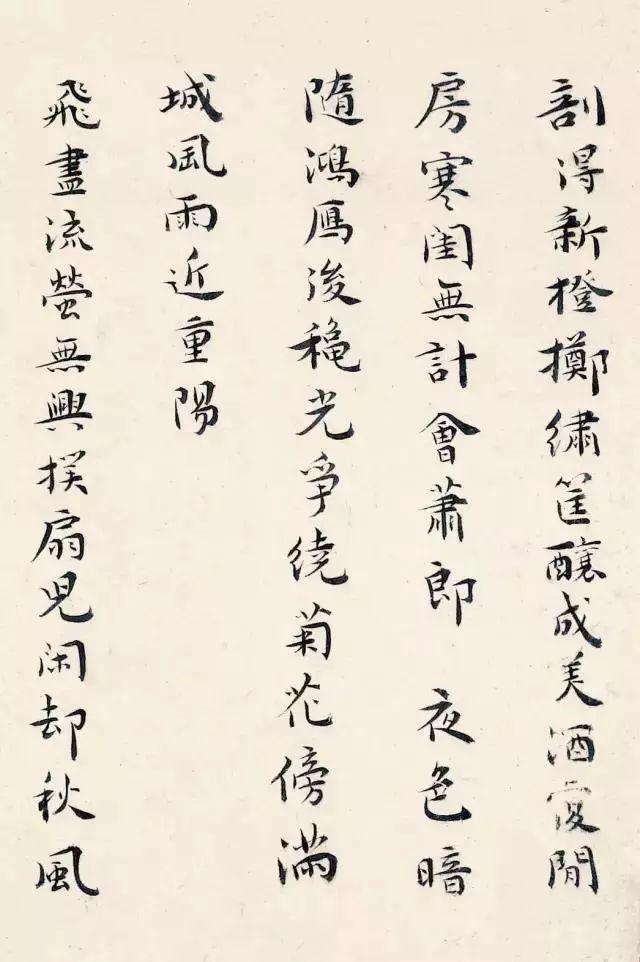 剖得新橙擲繡筐釀成美酒復閒
房寒閨無計會蕭郎 夜色暗
隨鴻鴈後穐光爭繞菊花傍滿
城風雨近重陽
飛盡流螢無興撲扇兒閑却秋風